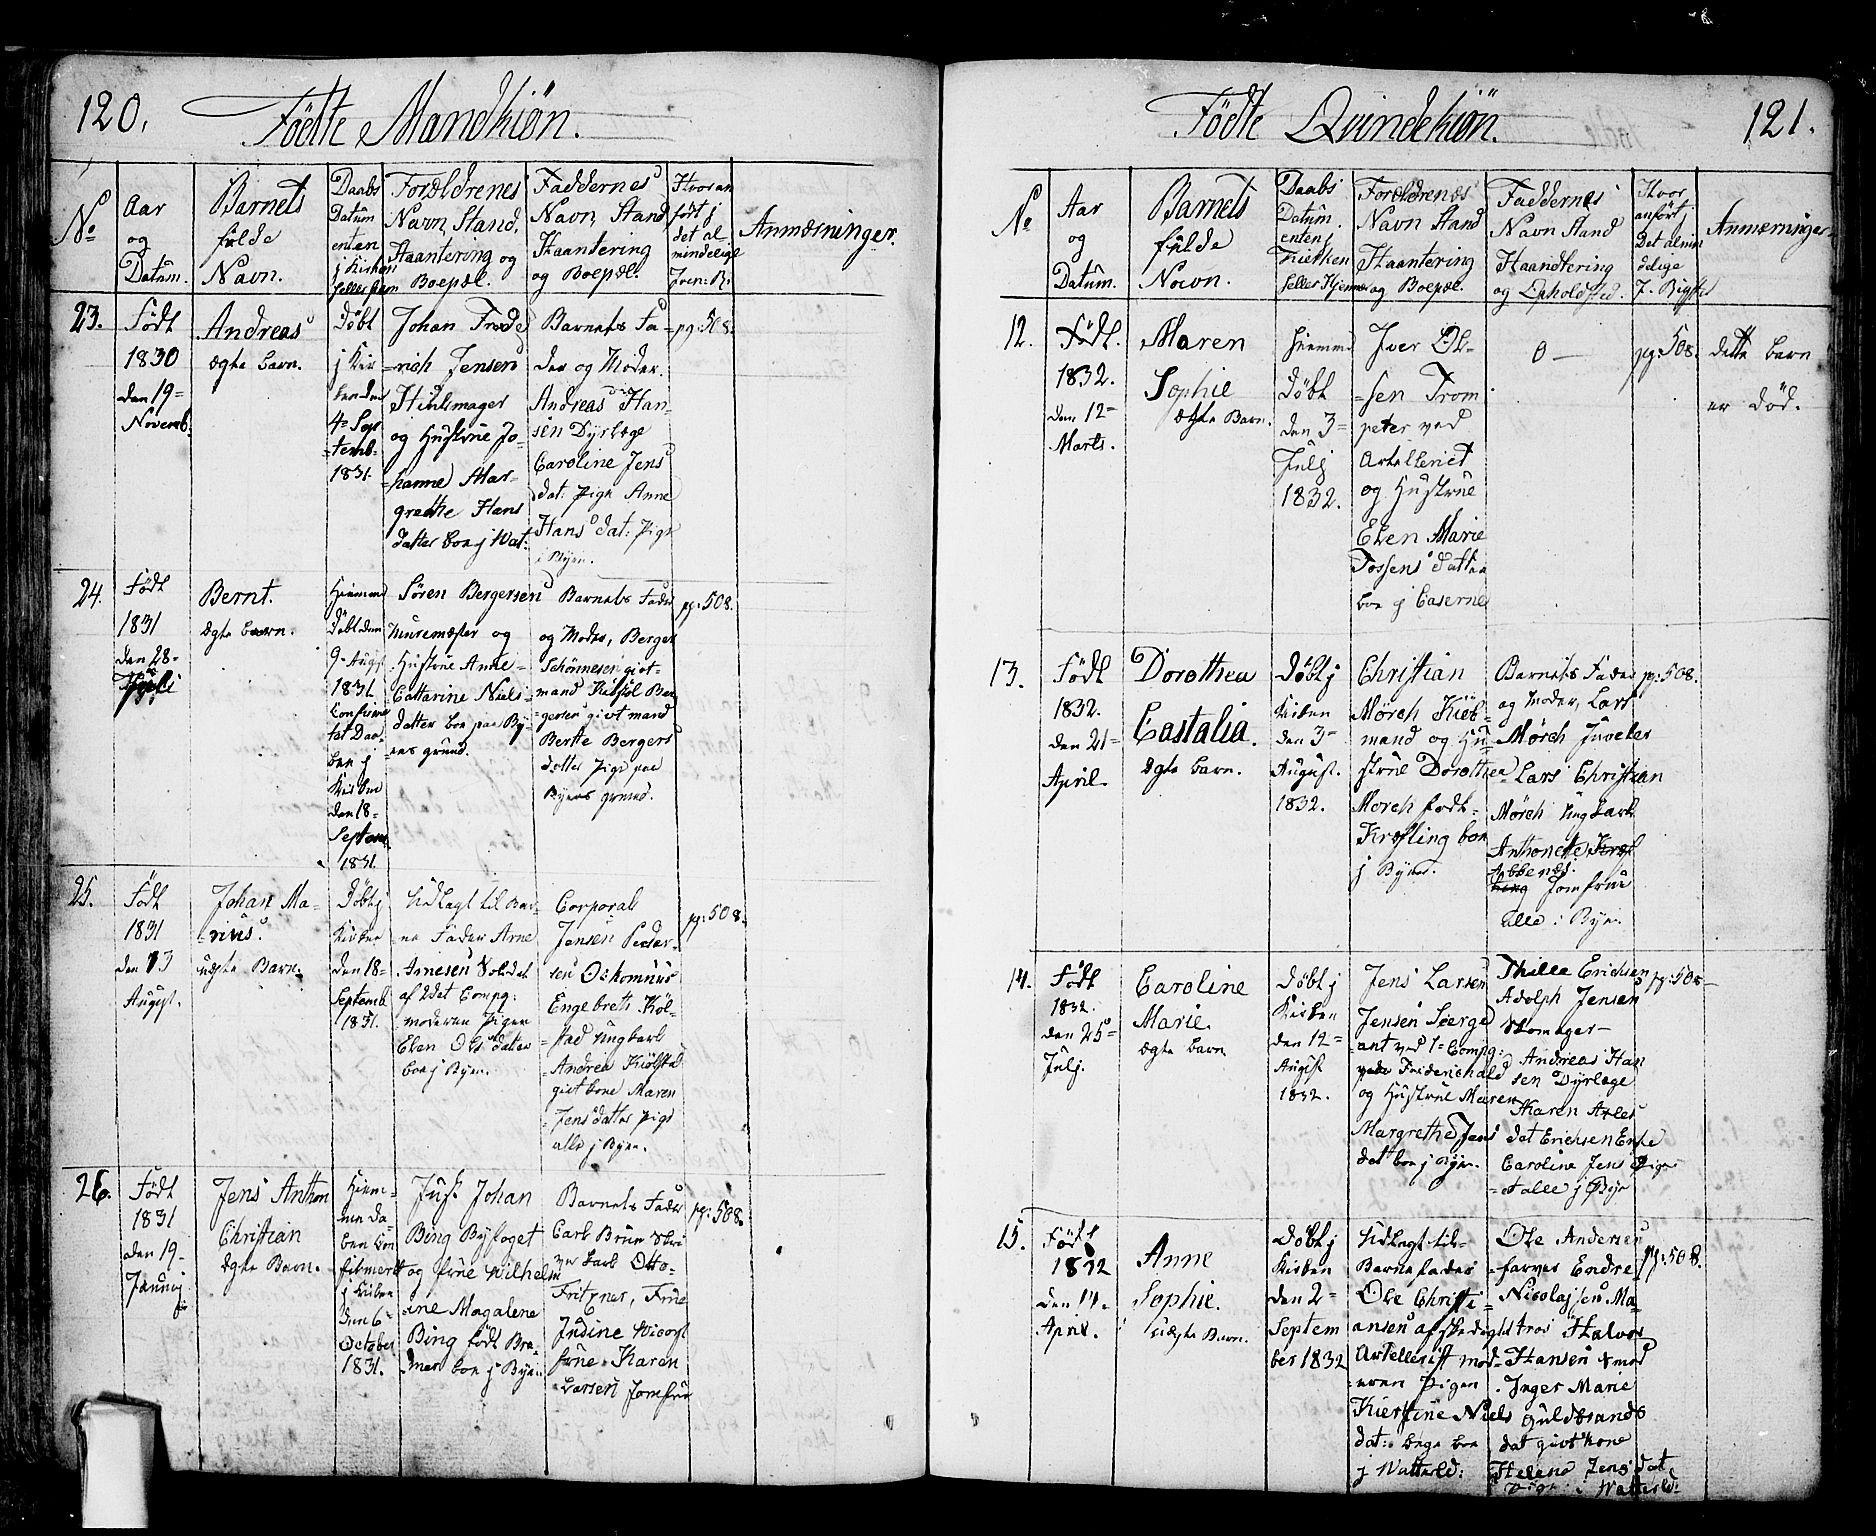 120.
Födte Mandkiön.
No
Aar
og
Datum.
Barnets
fulde
Navn.
Daabs
Datum
enten
j Kirken
heller hiem
Forældrenes
Navn, Stand,
Haantering og
Boepæl.
Faddernes
Navn, Stand
Haantering
og Boepæl.
Hvor an
fört j
det al
mindelige
Jven: R.
Anmærninger.
23.
Födt
1830
den 19=
Novemb.
Andreas
ægte barn.
Döbt
j Kir
ken den
4= Sep
=temb=
1831.
Johan Frede
=rich Jensen
og Hustrue Jo=
=hanne Mar=
grethe Hans
datter boe j Wat:
Barnets Fa=
der og Moder.
Andreas Han=
sen Dyrlæge
Caroline Jens
dat: Pige Anne
Hans dat: Pige
i Byen.
pg: 508.
24.
Födt
1831
den 28=
Bernt.
ægte barn.
Hiemme
döbt den
9= Augs.
1831.
Confirme
tet Daa
ben j
Kirken
den 18=
Septem
1831.
Sören Bergersen
Muremæster og
Hustrue Anne
Cattarine Niels
datter boe paa By
ens grund.
Barnets Fader
og Moder, Berger
Schönnesen givt=
mand Ber
gersen givt mand
Berthe Bergers
datter Pige paa
Byens grund.
pg: 508.
25.
Födt
1831
den 13
August.
Johan Ma=
=rius.
uægte Barn.
Döbt j
Kirken
den 18=
Septemb
1831.
Udlagt til Bar=
ne Fader Arne
Arnesen Soldat
af 2det Compg:
moderen Pigen
Elen Ols datter
boe j Byen.
Corporal
Jensen Peder=
sen
Engebreth Köl=
=stad Ungkarl
Andrea Kiölstad
givt kone Maren
Jens datter Pige
alle j Byen.
pg: 508.
26.
Födt
1831
den 19=
Jens Anthon
Christian
ægte Barn.
Hiem=
me Da=
ben Con
firmert
j Kirken
den 6=
October
1831.
Just Johan
Bing Byfoget
og frue Wilhelm
ine Magalene
Bing födt Bra=
mer boe j Byen
Barnets Fader
Carl Bruun
Otto
Fritzner, Frue
Jndine
frue Karen
Larsen Jomfrue
pg: 508.
Födte Qvindekiön.
121.
No
Aar
og
Datum.
Barnets
fulde
Navn.
Daabs
Datum
enten j
Kirken
heller Hjemme
Forældrenes
Navn Stand
Haantering
og Boepæl.
Faddernes
Navn Stand
Haandtering
og Opholdsted.
Hvor
anfört j
Det almin
delige
J. Rigster
Anmærninger
12.
Födt.
1832.
den 12=
Marts.
Maren
Sophie
ægte Barn.
Hiemme
Döbt
den 3=
Julj
1832.
Jver Ol=
=sen Trom
peter ved
Artelleriet
og Hustrue
Elen Marie
Tossens datter
boe j Caserne
0 —
pg: 508.
dette barn
er död.
13.
Födt
1832.
den 21=
April.
Dorothea
Castalia.
ægte barn.
Döbt j
Kirken
den 3=
August.
1832.
Christian
Mörch Kiöb=
mand og Hu=
strue Dorothea
Mörch födt
Kræfting boe
j Byen.
Barnets Fader
og Moder, Lars
Mörch Juveler
Lars Christian
Mörch Ungkarl
Anthonette
Jomfrue
alle i Byen.
pg: 508.
14.
Födt
1832.
den 25=
Julj.
Caroline
Marie.
ægte barn
Döbt j
Kirken
den 12=
August
1832.
Jens Larsen
Jensen Serge
=ant ved 1= Compg:
Friderichald
og Hustrue Maren
Margrethe Jens
dat boe j Byen.
Thille Erichsen
Adolph Jensen
Skomager—
Andreas Han
sen Dyrlæge
Karen
dat Erichsen Enke
Caroline Jens Pige
=et alle j Bye
pg: 508—
15.
Födt
1832
den 14=
April.
Anne
Sophie.
uægte Barn.
Döbt j
Kirken
den 2=
Septem
ber 1832
Udlagt til=
Barne fader
Ole Christi=
ansen
Artellerist mod=
=eren Pigen
Kierstine Niels
dat: bege boe
j Watterld:
Ole Andersen
farver Endre
Nicolajsen Ma=
tros Halvor
Hansen Smed
Jnger Marie
Guldbrands
dat givt kone
Helene Jens dat
Pige i Watterld:
pg: 508.